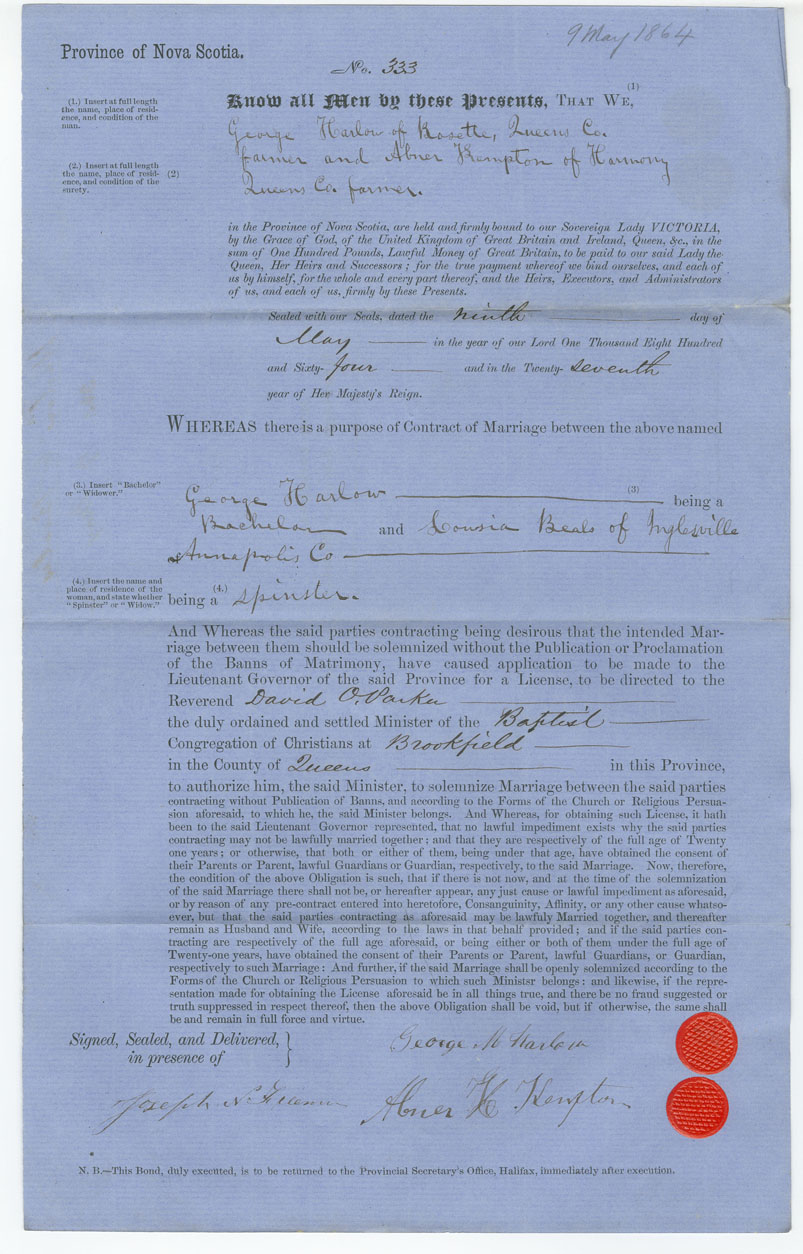 9 May 1864
Province of Nova Scotia.
No. 333
(1.) Insert at full length
the name, place of resid-
ence, and condition of the
man.
Know all Men by these Presents, THAT WE, (1)
George Harlow of Rosette, Queens Co.
(2.) Insert at full length
the name, place of resid-
ence, and condition of the
surety.
(2)
farmer and Abner Kempton of Harmony
Queens Co. farmer.
in the Province of Nova Scotia, are held and firmly bound to our Sovereign Lady VICTORIA,
by the Grace of God, of the United Kingdom of Great Britain and Ireland, Queen, &c., in the
sum of One Hundred Pounds, Lawful Money of Great Britain, to be paid to our said Lady the
Queen, Her Heirs and Successors; for the true payment whereof we bind ourselves, and each of
us by himself, for the whole and every part thereof, and the Heirs, Executors, and Administrators
of us, and each of us, firmly by these Presents.
Sealed with our Seals, dated the ninth day of
May in the year of our Lord One Thousand Eight Hundred
and Sixty-four and in the Twenty-seventh
year of Her Majesty's Reign.
WHEREAS there is a purpose of Contract of Marriage between the above named
(3.) Insert "Bachelor"
or "Widower."
George Harlow (3) being a
Bachelor and Lousia Beals of Inglesville
Annapolis Co
(4.) Insert the name and
place of residence of the
woman, and state whether
"Spinster" or "Widow."
being a (4.) Spinster.
And Whereas the said parties contracting being desirous that the intended Mar-
riage between them should be solemnized without the Publication or Proclamation
of the Banns of Matrimony, have caused application to be made to the
Lieutenant Governor of the said Province for a License, to be directed to the
Reverend David O. Parker
the duly ordained and settled Minister of the Baptist
Congregation of Christians at Brookfield
in the County of Queens in this Province,
to authorize him, the said Minister, to solemnize Marriage between the said parties
contracting without Publication of Banns, and according to the Forms of the Church or Religious Persua-
sion aforesaid, to which he, the said Minister belongs. And Whereas, for obtaining such License, it hath
been to the said Lieutenant Governor represented, that no lawful impediment exists why the said parties
contracting may not be lawfully married together; and that they are respectively of the full age of Twenty
one years; or otherwise, that both or either of them, being under that age, have obtained the consent of
their Parents or Parent, lawful Guardians or Guardian, respectively, to the said Marriage. Now, therefore,
the condition of the above Obligation is such, that if there is not now, and at the time of the solemnization
of the said Marriage there shall not be, or hereafter appear, any just cause or lawful impediment as aforesaid,
or by reason of any pre-contract entered into heretofore, Consanguinity, Affinity, or any other cause whatso-
ever, but that the said parties contracting as aforesaid may be lawfuly Married together, and thereafter
remain as Husband and Wife, according to the laws in that behalf provided; and if the said parties con-
tracting are respectively of the full age aforesaid, or being either or both of them under the full age of
Twenty-one years, have obtained the consent of their Parents or Parent, lawful Guardians, or Guardian,
respectively to such Marriage: And further, if the said Marriage shall be openly solemnized according to the
Forms of the Church or Religious Persuasion to which such Ministsr belongs: and likewise, if the repre-
sentation made for obtaining the License aforesaid be in all things true, and there be no fraud suggested or
truth suppressed in respect thereof, then the above Obligation shall be void, but if otherwise, the same shall
be and remain in full force and virtue.
Signed, Sealed, and Delivered,
in presence of
George M Harlow
Joseph N. Freeman
Abner H Kempton
N. B.—This Bond, duly executed, is to be returned to the Provincial Secretary's Office, Halifax, immediately after execution.